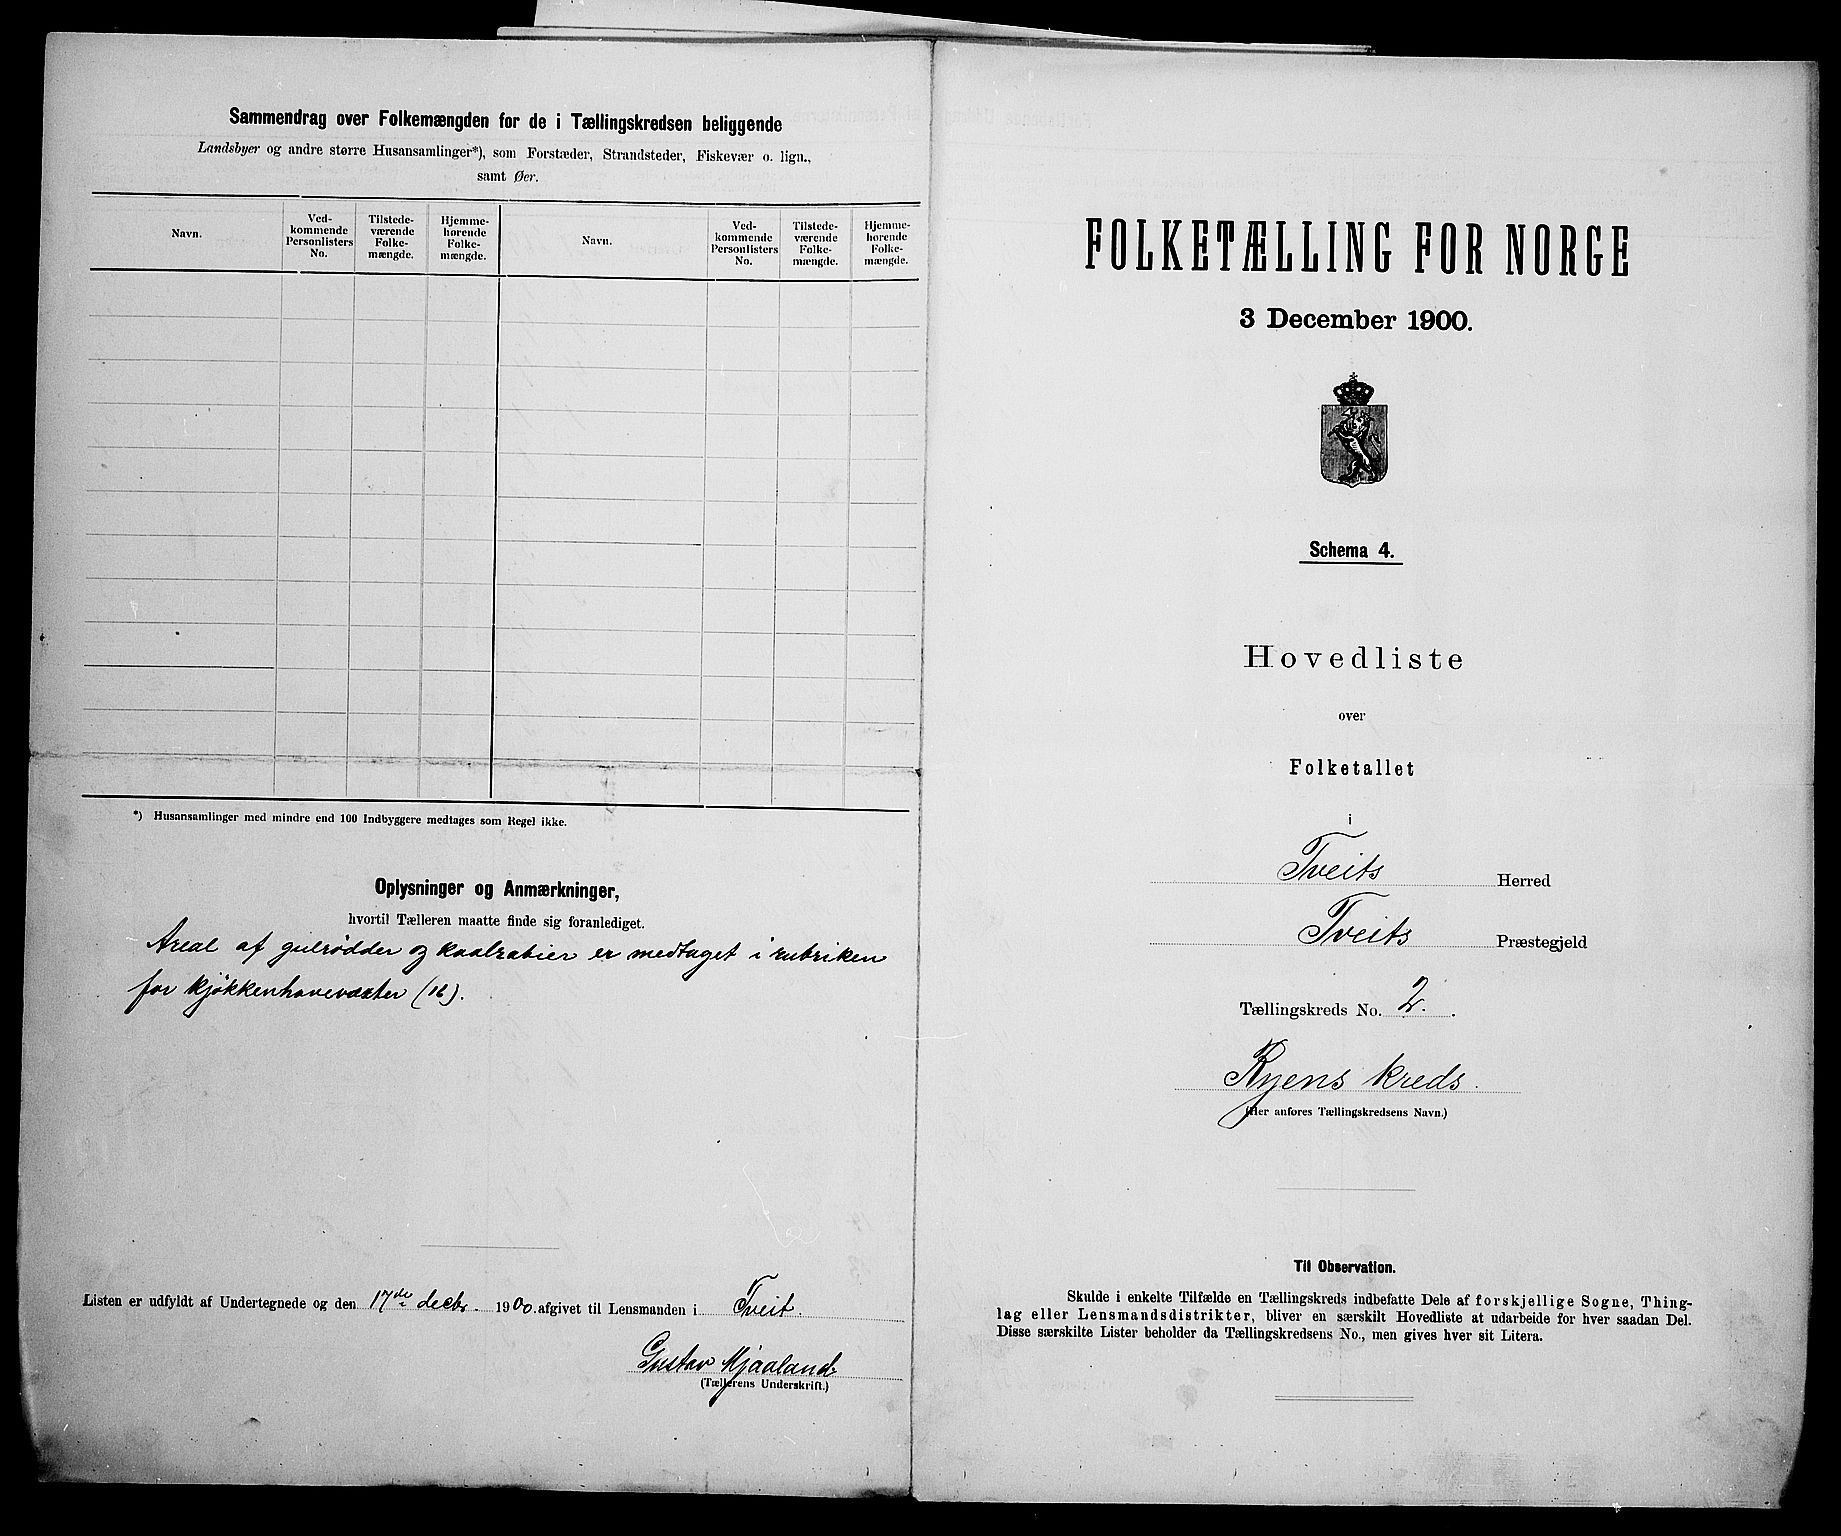 Sammendrag over Folkemængden for de i Tællingskredsen beliggende
Landsbyer og andre større Husansamlinger*), som Forstæder, Strandsteder, Fiskevær o. lign.,
samt Øer.
Navn.
Ved-
kommende
Personlisters
No.
Tilstede-
værende
Folke-
mængde.
Hjemme-
hørende
Folke-
mængde.
Navn.
Ved-
kommende
Personlisters
No.
Tilstede-
værende
Folke-
mængde.
Hjemme-
hørende
Folke-
mængde.
*) Husansamlinger med mindre end 100 Indbyggere medtages som Regel ikke.
Oplysninger og Anmærkninger,
hvortil Tælleren maatte finde sig foranlediget.
Areal af gulrødder og kaalrabier er medtaget i rubriken
for kjøkkenhavevæxter (16).
Listen er udfyldt af Undertegnede og den 17de decbr. 1900 afgivet til Lensmanden i Tveit.
Gustav Mjaaland
(Tællerens Underskrift.)
FOLKETÆLLING FOR NORGE
3 December 1900.
Schema 4.
Hovedliste
over
Folketallet
i
Tveits Herred
Tveits Præstegjeld
Tællingskreds No. 2.
Ryens kreds.
(Her anføres Tællingskredsens Navn.)
Til Observation.
Skulde i enkelte Tilfælde en Tællingskreds indbefatte Dele af forskjellige Sogne, Thing-
lag eller Lensmandsdistrikter, bliver en særskilt Hovedliste at udarbeide for hver saadan Del.
Disse særskilte Lister beholder da Tællingskredsens No., men gives hver sit Litera.